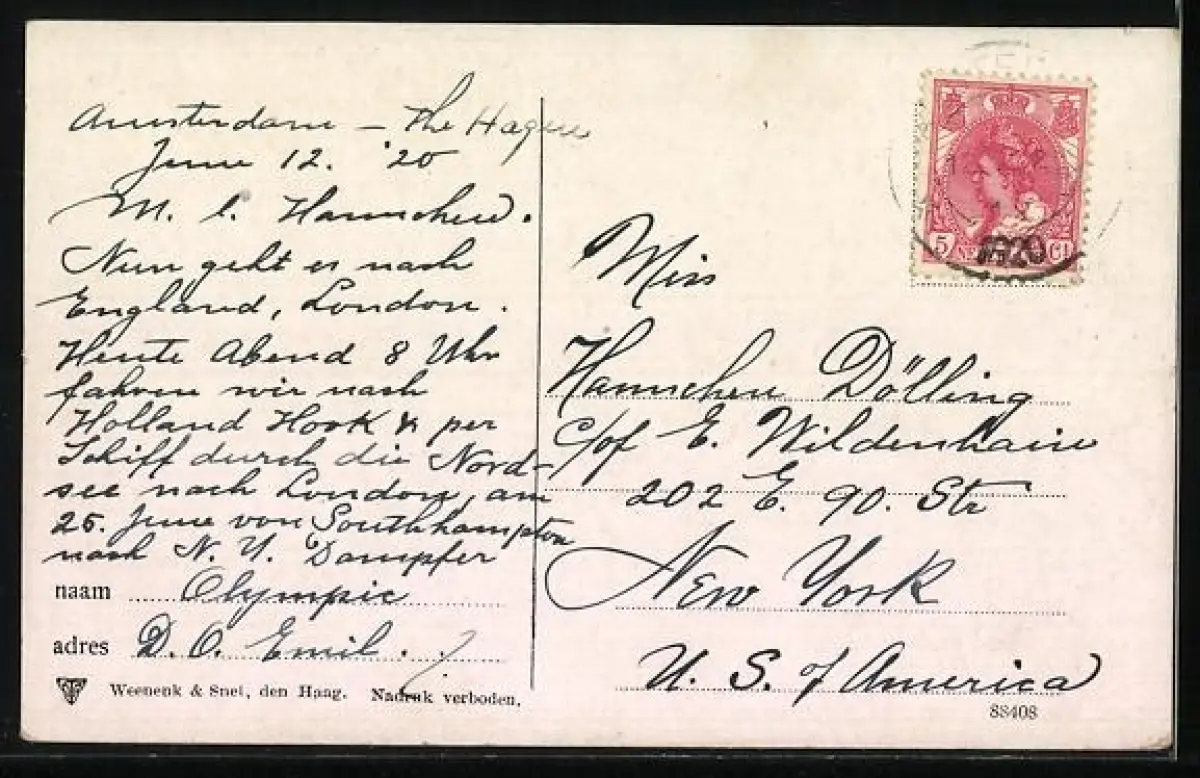 Amsterdam — The Hague
June 12. '20
M. l. Hannchen.
Nun geht es nach
England, London.
Heute Abend 8 Uhr
fahren wir nach
Holland Hook & per
Schiff durch die Nord-
see nach London, am
25. June von Southhampton
nach N. Y. Dampfer
naam Olympic
adres D. O. Emil.
Weenenk & Snel, den Haag. Nadruk verboden.
5 Ct
1920
Miss
Hannchen Dölling
c/of E. Wildenhain
202 E. 90. Str
New York
U. S. of America
88408